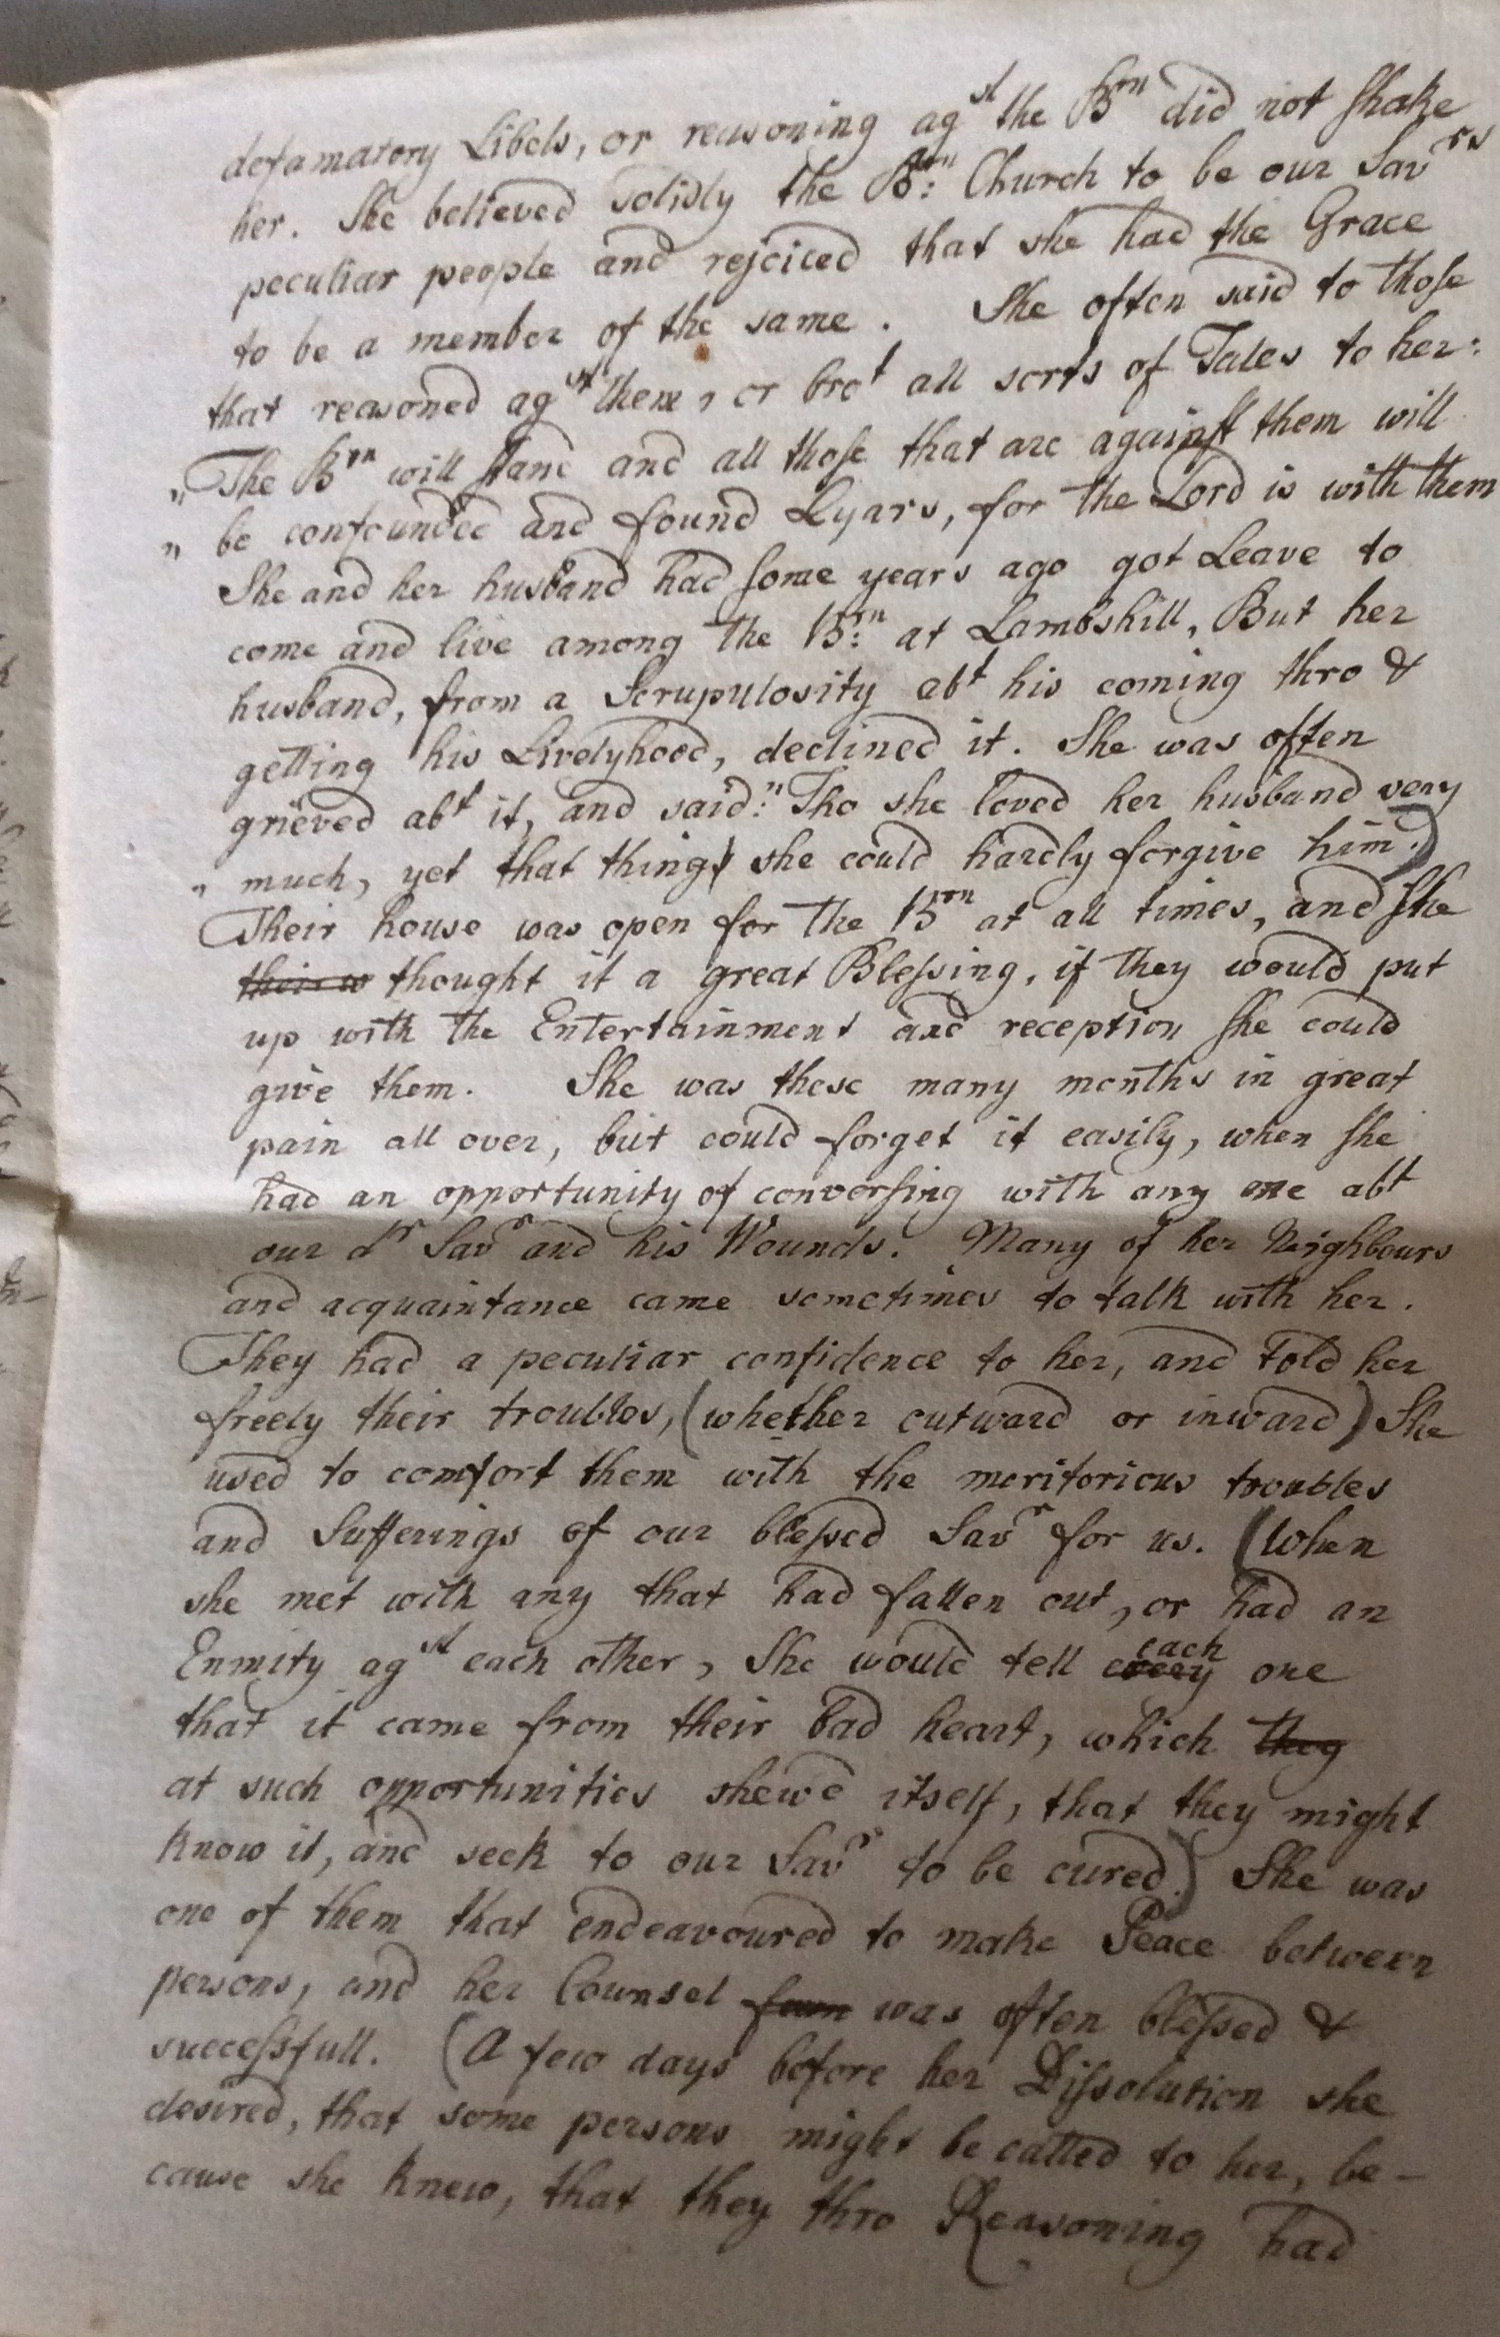 defamatory Libels, or reasoning agst the Brn did not shake
her. She believed solidly the Brn: Church to be our Savrs
peculiar people and rejoiced that she had the Grace
to be a member of the same. She often said to those
that reasoned agst them, or brot all sorts of Tales to her:
"The Brn will stand and all those that are against them will
" be confounded and found Lyars, for the Lord is with them
She and her husband had some years ago got Leave to
come and live among the Brn: at Lambshill, But her
husband, from a Scrupulosity abt his coming thro &
getting his Livelyhood, declined it. She was often
grieved abt it, and said: "Tho she loved her husband very
" much, yet that thing she could hardly forgive him.)
Their house was open for the Brn at all times, and she
their w thought it a great Blessing, if they would put
up with the Entertainment and reception she could
give them. She was these many months in great
pain all over, but could forget it easily, when she
had an opportunity of conversing with any one abt
our dr Savr and his Wounds. Many of her Neighbours
and acquaintance came sometimes to talk with her.
They had a peculiar confidence to her, and told her
freely their troubles, (whether outward or inward) She
used to comfort them with the meritorious troubles
and Sufferings of our blessed Savr for us. (When
she met with any that had fallen out, or had an
Enmity agst each other, She would tell every each one
that it came from their bad heart, which they
at such opportunities shew'd itself, that they might
know it, and seek to our Savr to be cured.) She was
one of them that endeavoured to make Peace between
persons, and her Counsel was often blessed &
successfull. (A few days before her Dissolution she
desired, that some persons might be called to her, be-
cause she knew, that they thro Reasoning had